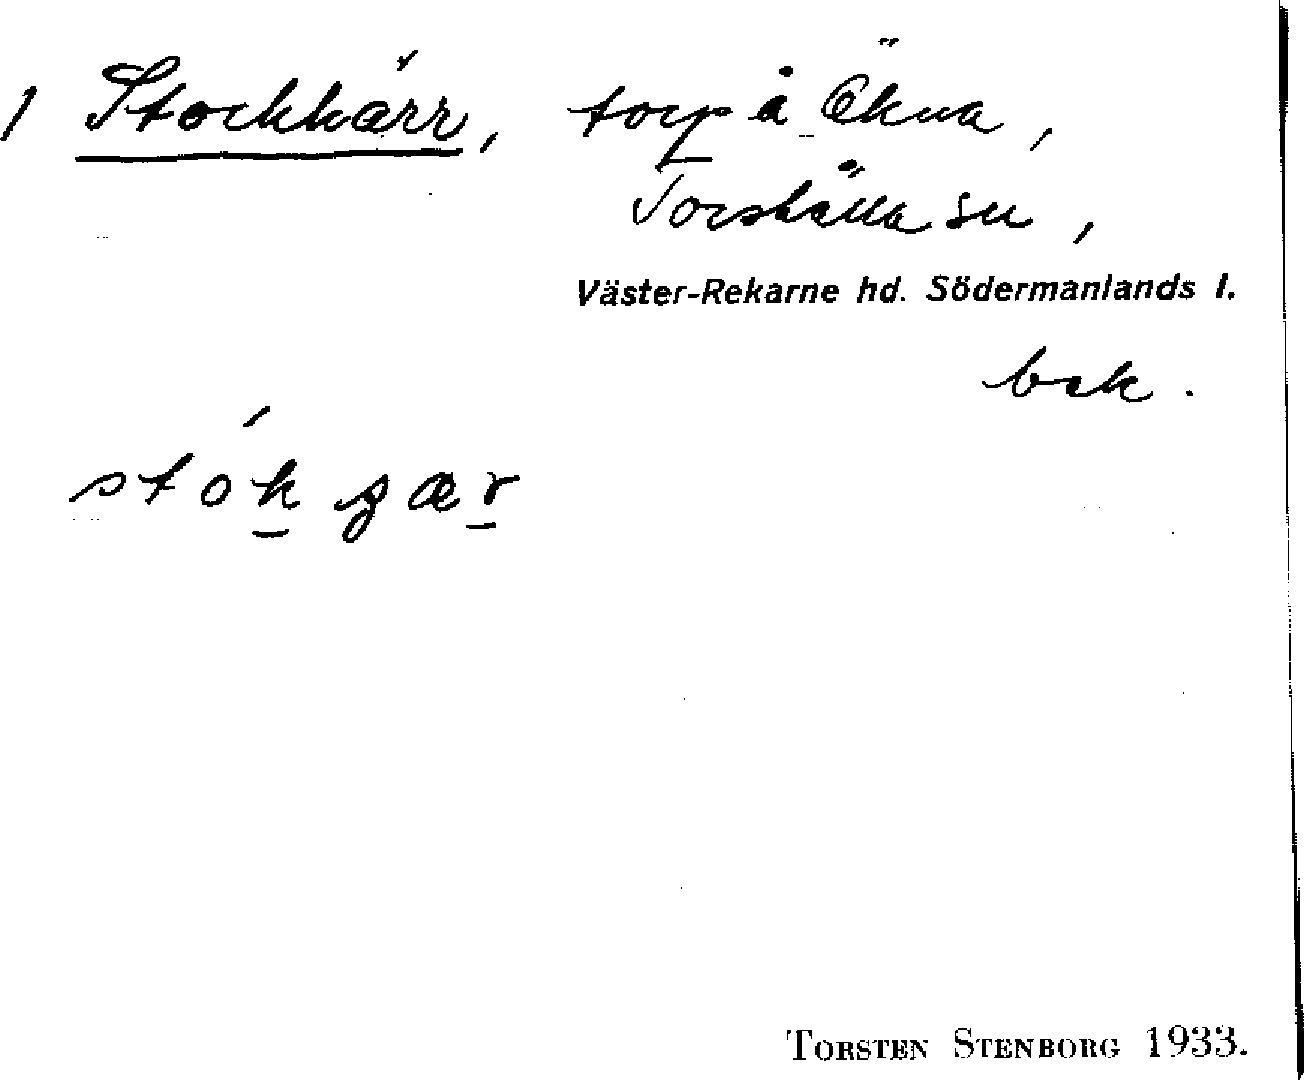 1 Stockkärr, torp å Ökna,
Torshälla sn,
Väster-Rekarne hd. Södermanlands l.
bek.
TORSTEN STENBORG 1933.